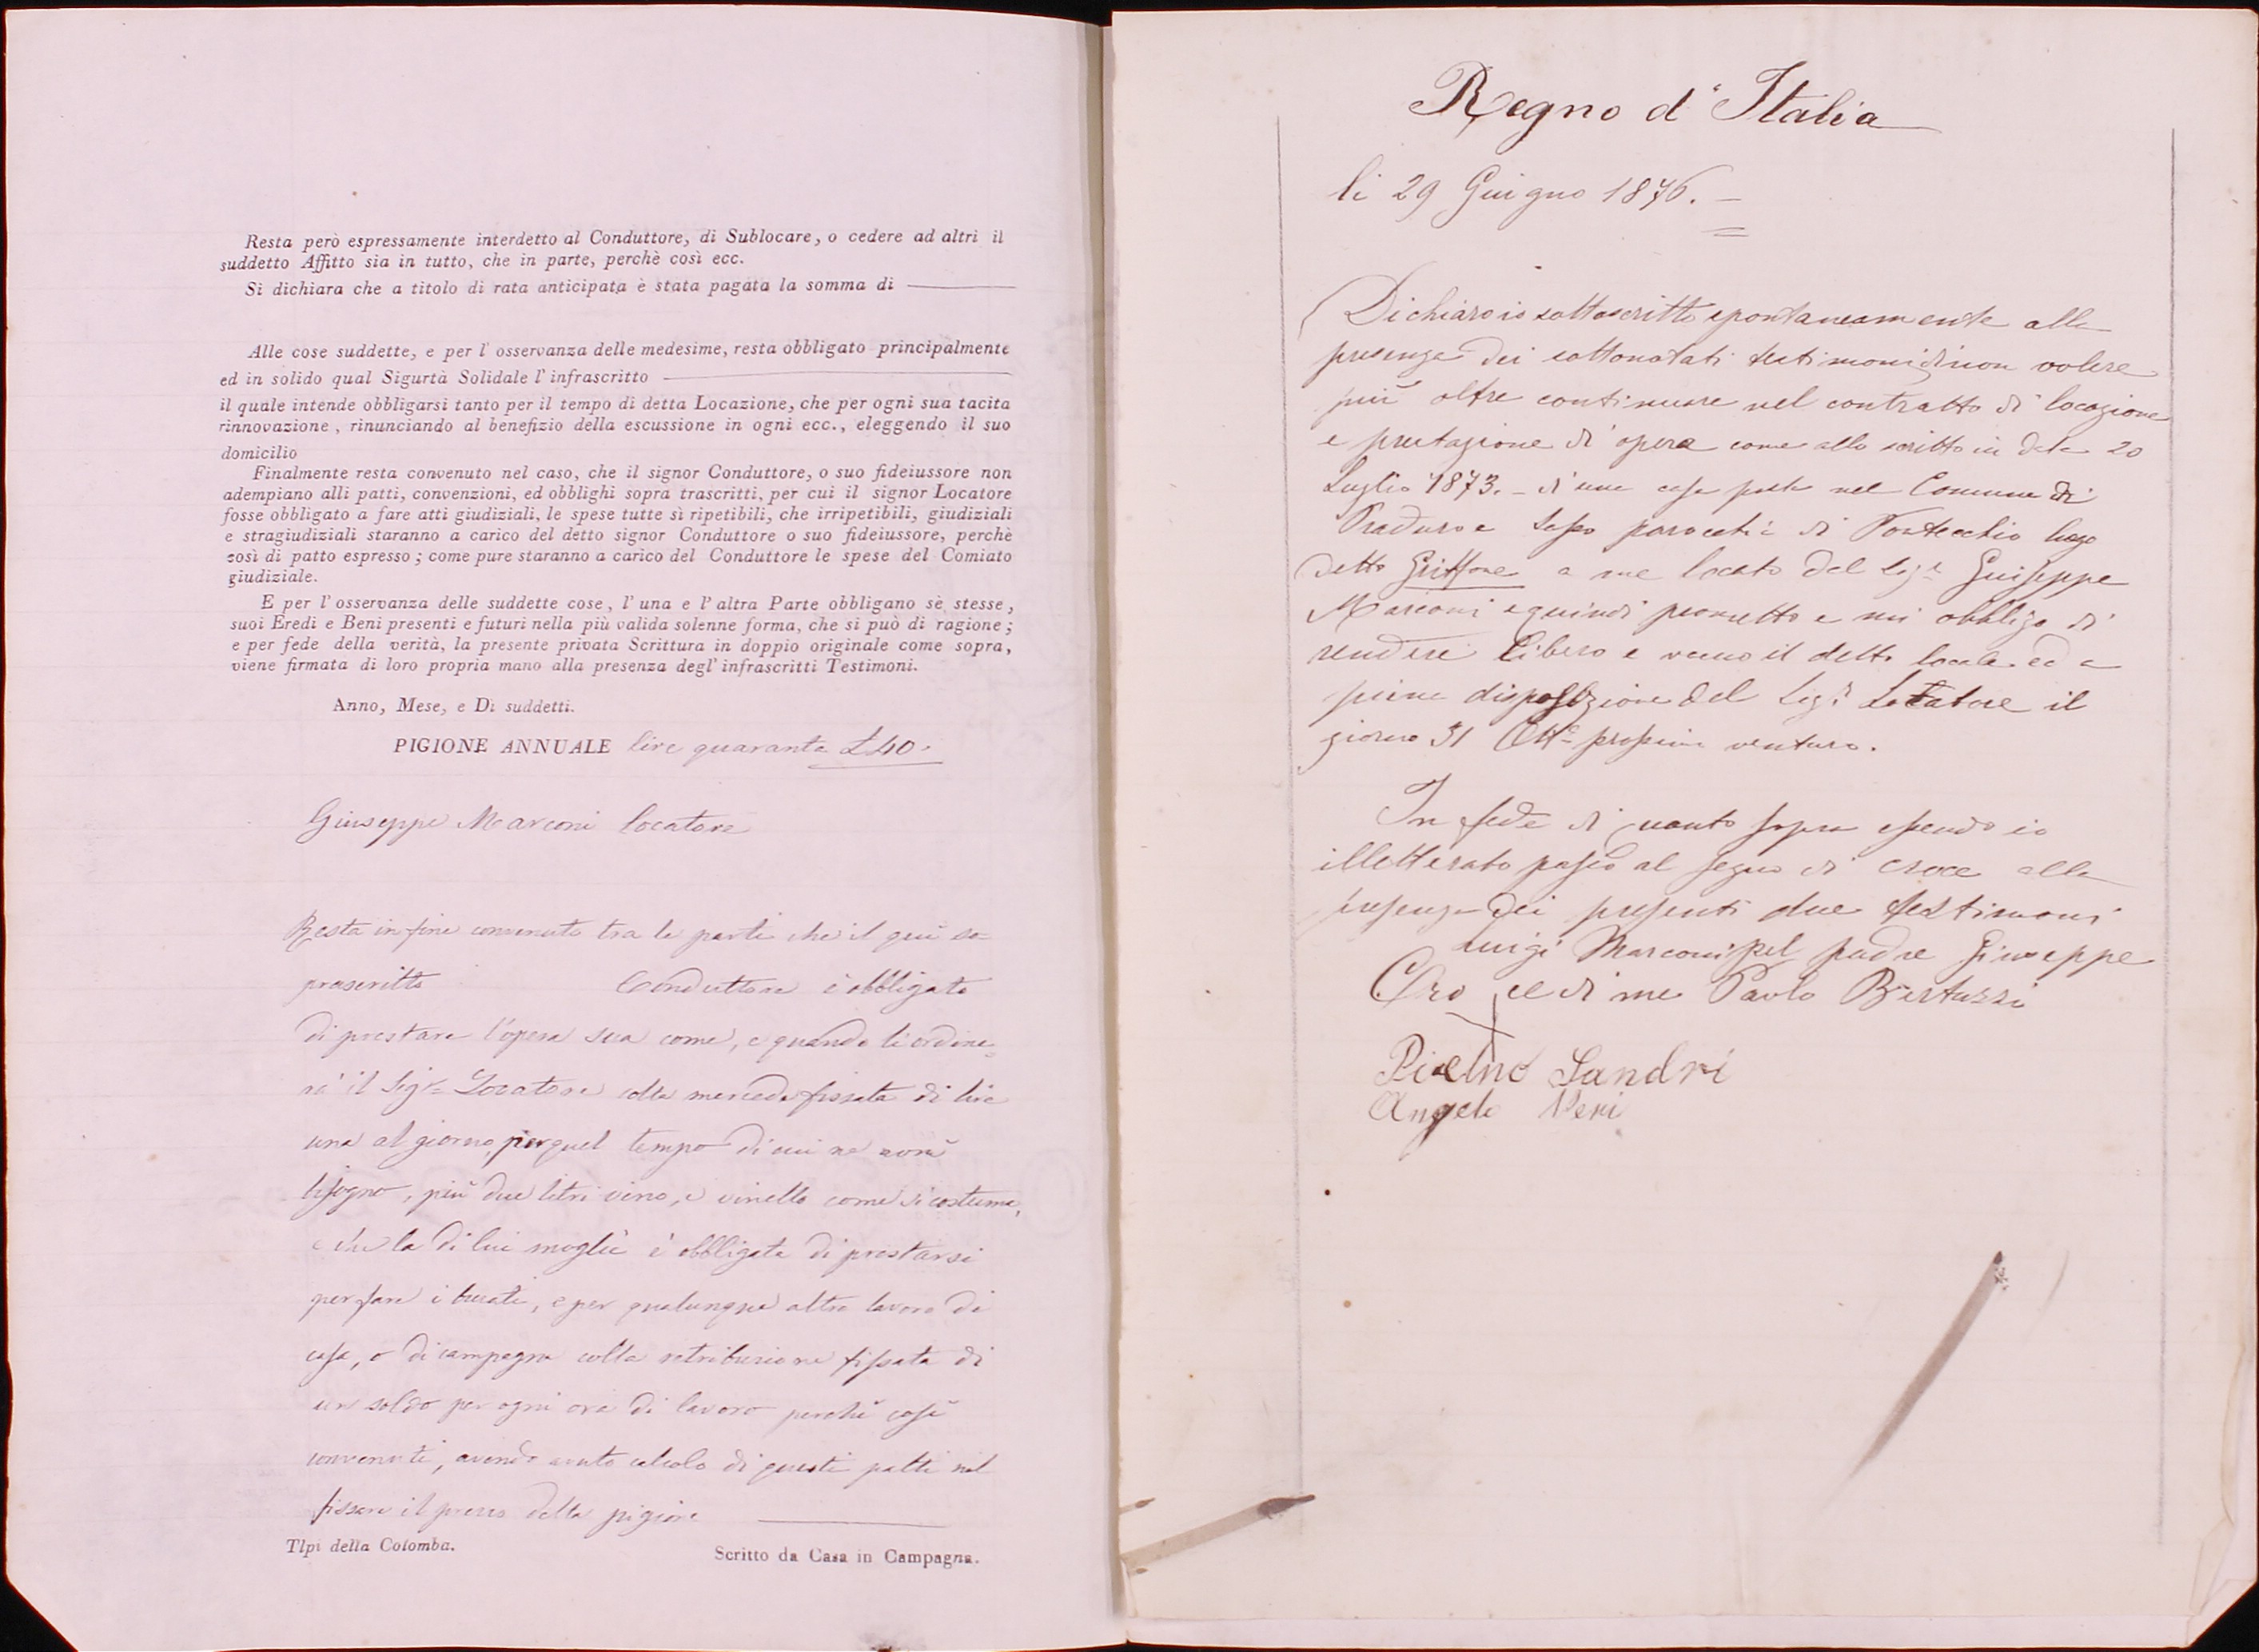 Resta però espressamente interdetto al Conduttore, di Sublocare, o cedere ad altri il
suddetto Affitto sia in tutto, che in parte, perchè così ecc.
Si dichiara che a titolo di rata anticipata è stata pagata la somma di
Alle cose suddette, e per l'osservanza delle medesime, resta obbligato principalmente
ed in solido qual Sigurtà Solidale l'infrascritto
il quale intende obbligarsi tanto per il tempo di detta Locazione, che per ogni sua tacita
rinnovazione, rinunciando al benefizio della escussione in ogni ecc., eleggendo il suo
domicilio
Finalmente resta convenuto nel caso, che il signor Conduttore, o suo fideiussore non
adempiano alli patti, convenzioni, ed obblighi sopra trascritti, per cui il signor Locatore
fosse obbligato a fare atti giudiziali, le spese tutte sì ripetibili, che irripetibili, giudiziali
e stragiudiziali staranno a carico del detto signor Conduttore o suo fideiussore, perchè
così di patto espresso; come pure staranno a carico del Conduttore le spese del Comiato
giudiziale.
E per l'osservanza delle suddette cose, l'una e l'altra Parte obbligano sè stesse,
suoi Eredi e Beni presenti e futuri nella più valida solenne forma, che si può di ragione;
e per fede della verità, la presente privata Scrittura in doppio originale come sopra,
viene firmata di loro propria mano alla presenza degl'infrascritti Testimoni.
Anno, Mese, e Dì suddetti.
PIGIONE ANNUALE lire quaranta £40.
Giuseppe Marconi locatore
Resta in fine convenuto tra le parti che il qui so-
prascritto Conduttore è obbligato
di prestare l'opera sua come, e quando li ordine=
rà il Sigr. Locatore colla mercede fissata di lire
una al giorno, per quel tempo di cui ne avrà
bisogno, più due litri vino, e vinello come si costuma,
e che la di lui moglie è obbligata di prestarsi
per fare i bucati, e per qualunque altro lavoro di
casa, o di campagna colla retribuzione fissata di
un soldo per ogni ora di lavoro perchè così
convenuti, avendo avuto calcolo di questi patti nel
fissare il prezzo della pigione
Tipi della Colomba. Scritto da Casa in Campagna.
Regno d'Italia
li 29 Giugno 1876.
Dichiaro io sottoscritto spontaneamente alla
presenza dei sottonotati testimoni di non volere
più oltre continuare nel contratto di locazione
e prestazione di opera come allo scritto in data 20
Luglio 1873. - di una casa posta nel Comune di
Praduro e Sasso parocchia di Pontecchio luogo
detto Griffone a me locato dal Sigr. Guiseppe
Marconi e quindi prometto e mi obbligo di
rendere libero e vacuo il detto locale ed a
piena disposizione del Sigr. Locatore il
giorno 31 Ott.e prossimo venturo.
In fede di quanto sopra essendo io
illetterato passo al segno di croce alla
presenza dei presenti due testimoni
Luigi Marconi pel padre Giuseppe
Cro ce di me Paolo Bertuzzi
Pietro Sandri
Angelo Neri